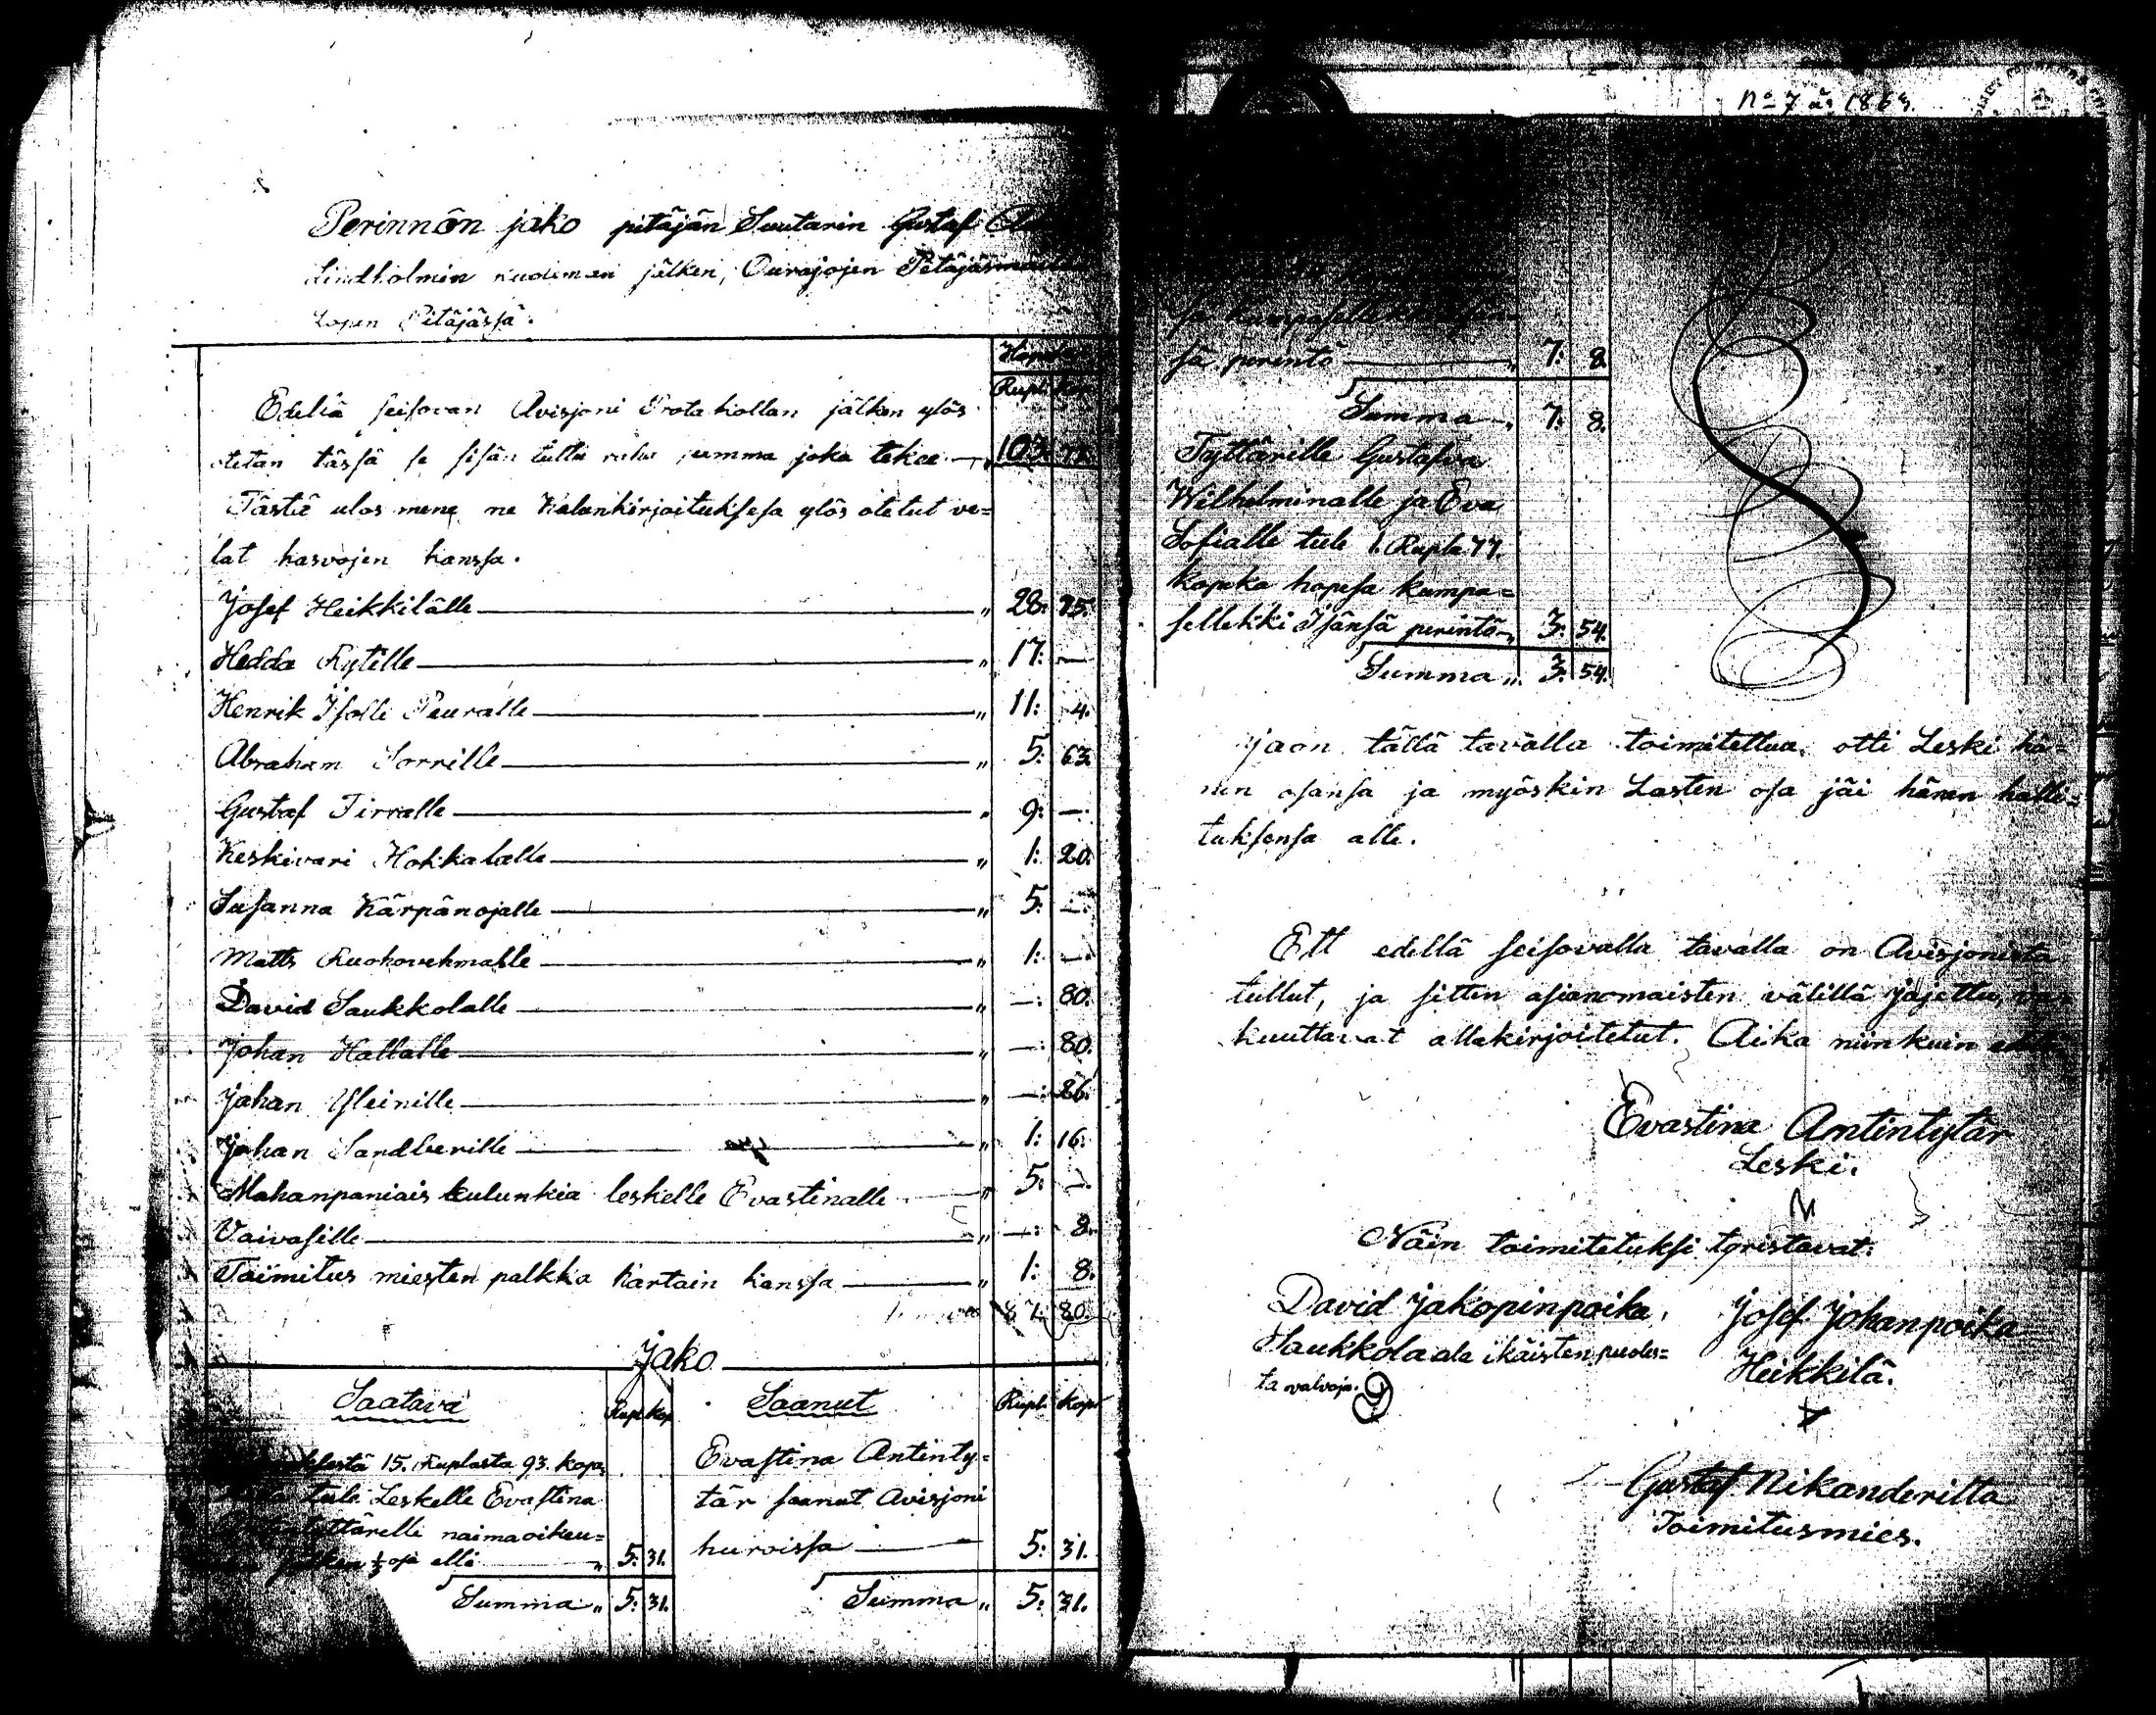 Perinnön jako pitäjän Suutarin Gustaf
Lindholmin kuoleman jälken,
Lopen Pitäjässä.
Rupl.
Edellä seisovan Avisjoni Protakollan jälken ylös
otetan tässä se sisän tullu raha summa joka tekee — „ 103: 73.
Tästä ulos mene ne Kalunkirjoituksesa ylös otetut ve=
lat kasvojen kanssa.
Josef Heikkilälle — „ 28: 75.
Hedda Rytille — „ 17: —
Henrik Isolle Peuralle — „ 11: 4.
Abraham Sorrille — „ 5: 63.
Gustaf Tirralle — „ 9: —.
Keskivari Hokkalalle — „ 1: 20.
Susanna Kärpänojalle — „ 5: —.
Matts Ruohovehmalle — „ 1: —.
David Saukkolalle — „ —: 80.
Johan Hallalle — „ —: 80.
Johan Yleinille — „ —: 26.
Johan Sandberille — „ 1: 16.
Mahanpaniais kulunkia leskelle Evastinalle — „ 5: —.
Vaivasille — „ —: 8.
Toimitus miesten palkka kartain kanssa — „ 1: 8.
87: 80.
Jako
Saatava Rupl Kop Saanut Rupl. Kop.
15. Ruplasta 93. kopa
tule Leskelle Evastina
naimaoikeu=
jälken ⅓ osa elli — „ 5: 31.
Summa „ 5: 31.
Evastina Antinty=
tär saanut Avisjoni
huroissa — 5: 31.
Summa „ 5: 31.
No 7 än 1863.
sä perintö — „ 7: 8.
Summa „ 7: 8.
Tyttärille Gustafva
Wilhelminalle ja Eva
Sofialle tule 1. Rupla 77.
kopeka hopesa kumpa=
sellekki Isänsä perintö „ 3: 54.
Summa „ 3: 54.
Jaon tällä tavalla toimitettua, otti Leski hä=
nen osansa ja myöskin Lasten osa jäi hänen halli=
tuksensa alle.
Ett edellä seisovalla tavalla on Avisjonista
tullut, ja sitten asianomaisten välillä jajettu, va=
kuuttavat allakirjoitetut. Aika niinkuin
Evastina Antintytär
Leski.
Näin toimitetuksi toristavat:
David Jakopinpoika, Josef Johanpoika
Saukkola ala ikäisten puoles= Heikkilä.
ta valvoja.
Gustaf Nikanderilta
Toimitusmies.